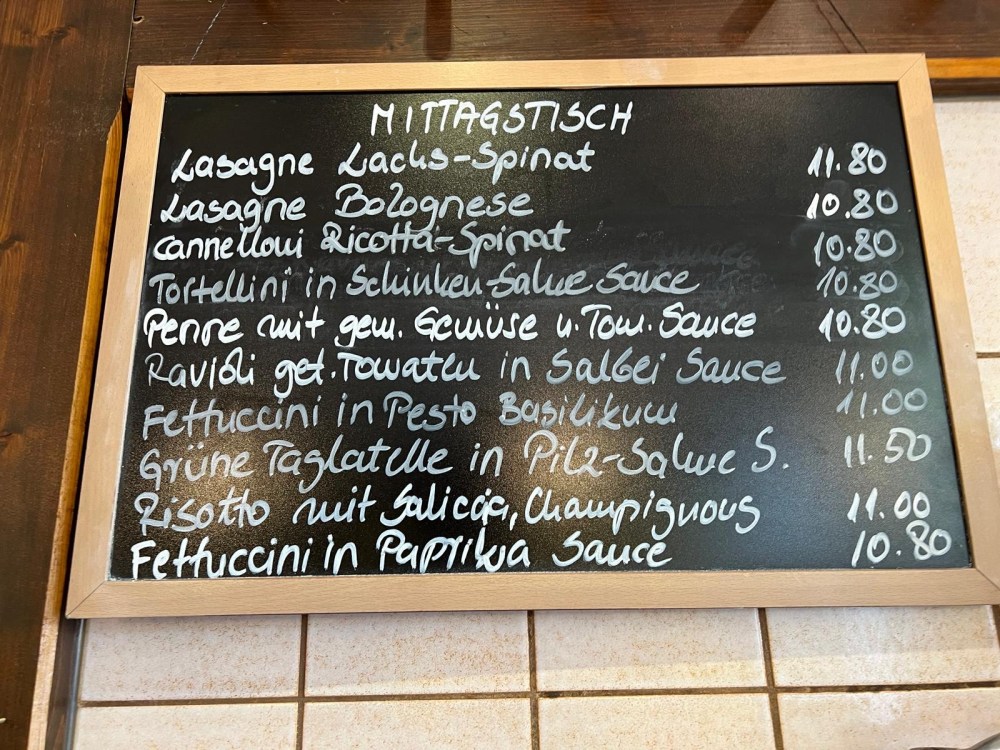 MITTAGSTISCH
Lasagne Lachs-Spinat 11.80
Lasagne Bolognese 10.80
Cannelloni Ricotta-Spinat 10.80
Tortellini in Schinken-Sahne Sauce 10.80
Penne mit gem. Gemüse u. Tom. Sauce 10.80
Ravioli get. Tomaten in Salbei Sauce 11.00
Fettuccini in Pesto Basilikum 11.00
Grüne Tagliatelle in Pilz-Sahne S. 11.50
Risotto mit Salicca, Champignons 11.00
Fettuccini in Paprika Sauce 10.80